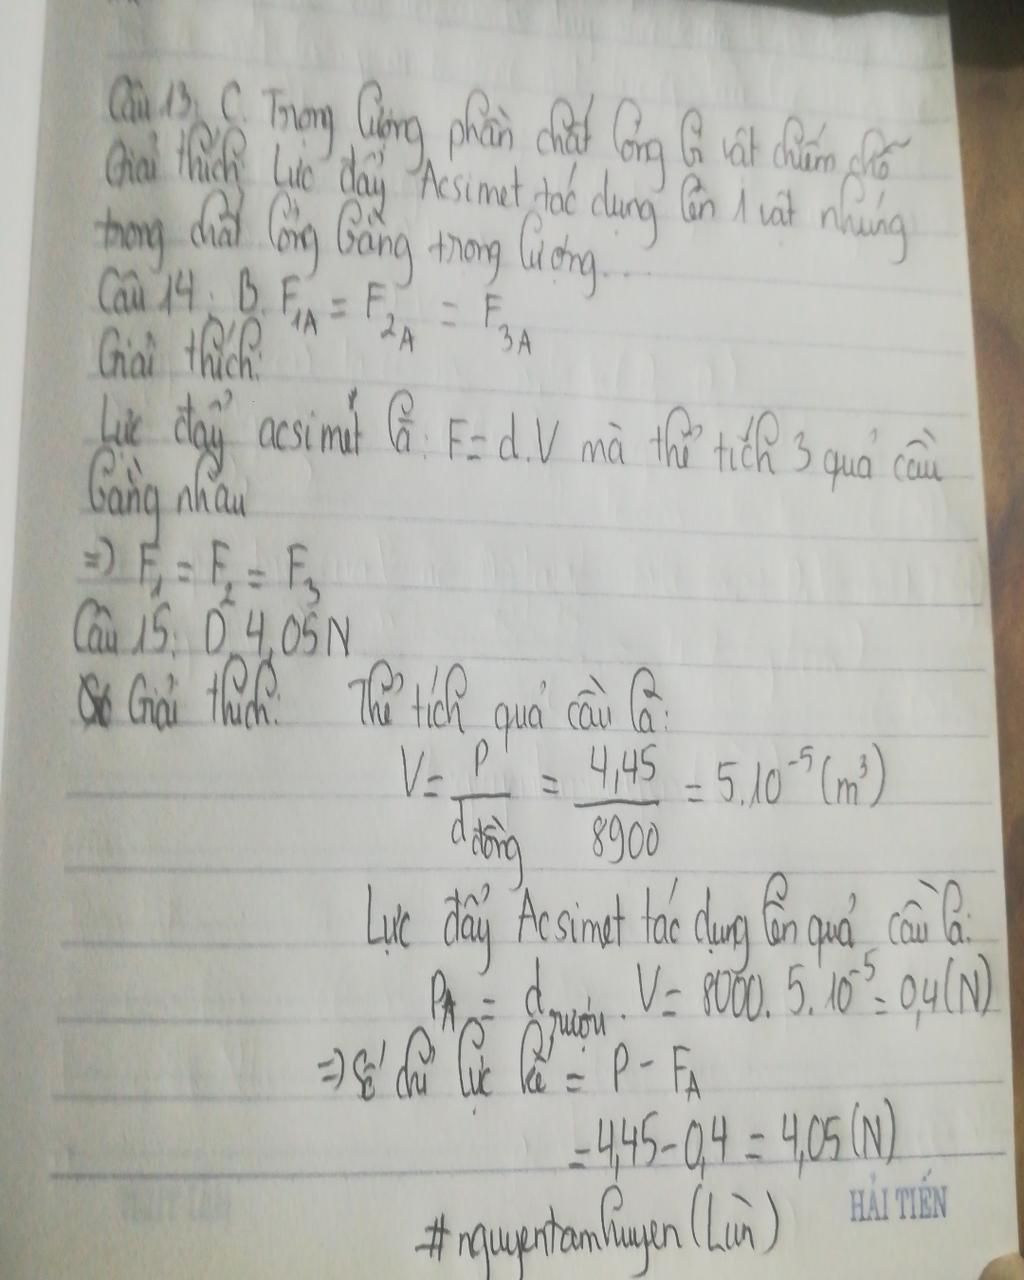 Câu 13: C. Trọng lượng phần chất lỏng bị vật chiếm chỗ
Giải thích Lực đẩy Acsimet tác dụng lên 1 vật nhúng
trong chất lỏng bằng trọng lượng...
Câu 14: B. F1A = F2A = F3A
Giải thích:
Lực đẩy acsimét là: F = d.V mà thể tích 3 quả cầu
bằng nhau
=> F1 = F2 = F3
Câu 15: D 4,05N
Giải thích: Thể tích quả cầu là:
V = P/d đồng = 4,45/8900 = 5.10^-5 (m³)
Lực đẩy Acsimet tác dụng lên quả cầu là:
PA = d rượu . V = 8000. 5. 10^-5 = 0,4 (N)
=> Số chỉ lực kế = P - FA
= 4,45 - 0,4 = 4,05 (N)
HẢI TIẾN
#nguyentamhuyen (Lùn)